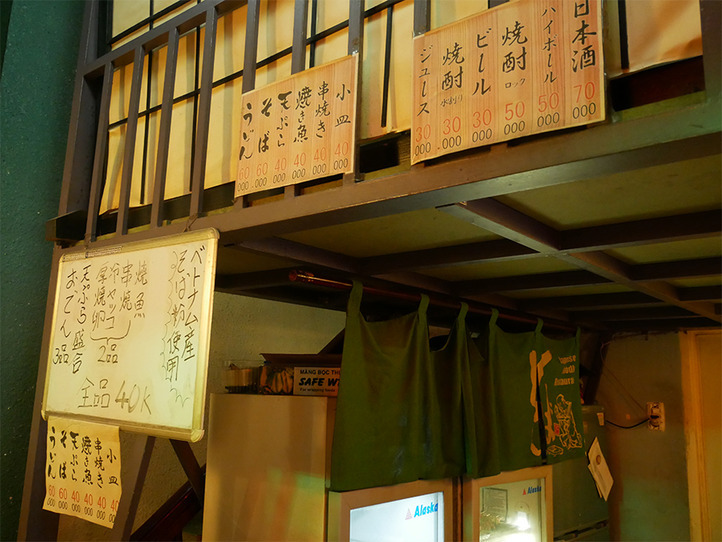 日本酒 70.000
ハイボール 50.000
焼酎 ロック 50.000
ビール 30.000
焼酎 水割り 30.000
ジュース 30.000
小皿 40.000
串焼き 40.000
焼き魚 40.000
天ぷら 40.000
そば 60.000
うどん 60.000
ベトナム産
そば粉使用
焼魚
串焼
冷ヤッコ
厚焼卵
2品
天ぷら盛合
おでん 3品
全品 40K
小皿 40.000
串焼き 40.000
焼き魚 40.000
天ぷら 60.000
そば 60.000
うどん 60.000
MÀNG BỌC TH
SAFE W
Alaska
Alaska